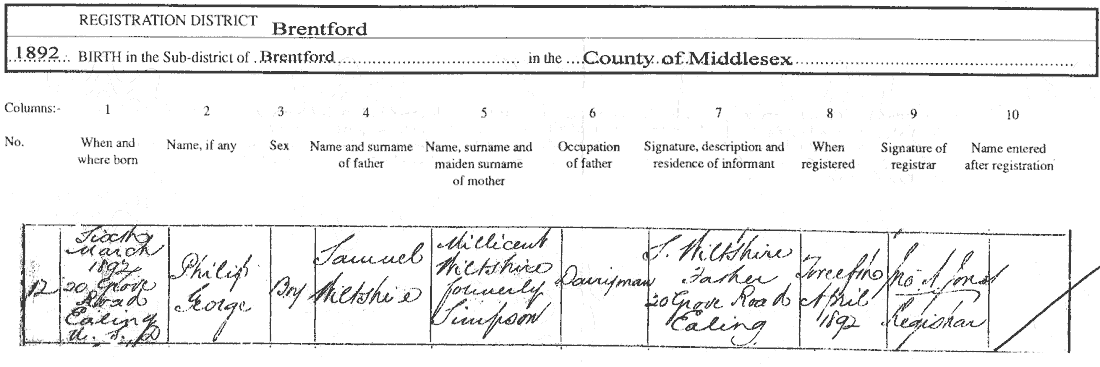 REGISTRATION DISTRICT Brentford
1892 BIRTH in the Sub-district of Brentford in the County of Middlesex
Columns:- 1 2 3 4 5 6 7 8 9 10
No. When and where born Name, if any Sex Name and surname of father Name, surname and maiden surname of mother Occupation of father Signature, description and residence of informant When registered Signature of registrar Name entered after registration
12
Sixth
March
1892
20 Grove
Road
Ealing
U.S.D
Philip
George
Boy
Samuel
Wiltshire
Millicent
Wiltshire
formerly
Simpson
Dairyman
S. Wiltshire
Father
20 Grove Road
Ealing
April
1892
Jones
Registrar